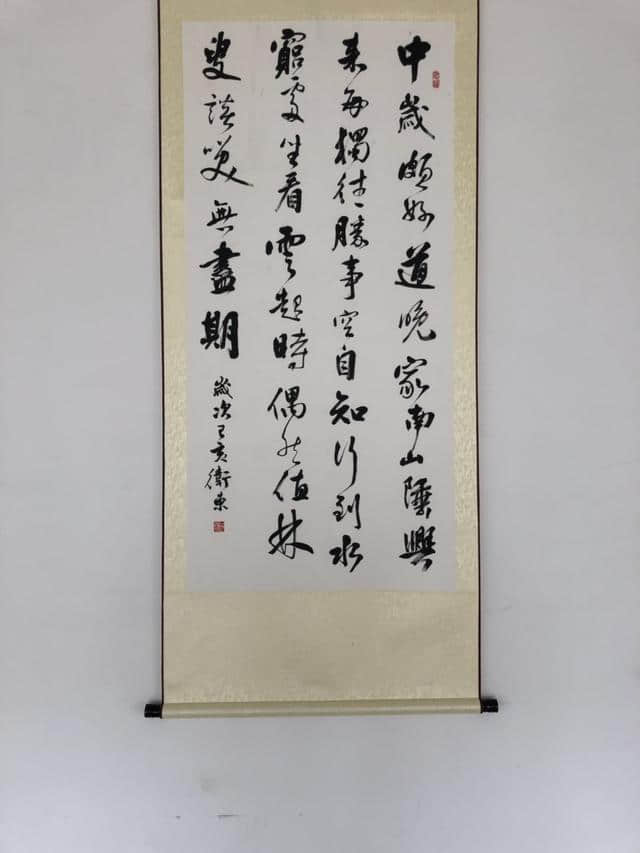 中歲頗好道晚家南山陲興
來每獨往勝事空自知行到水
窮處坐看雲起時偶然值林
叟談咲無盡期
歲次己亥衛東